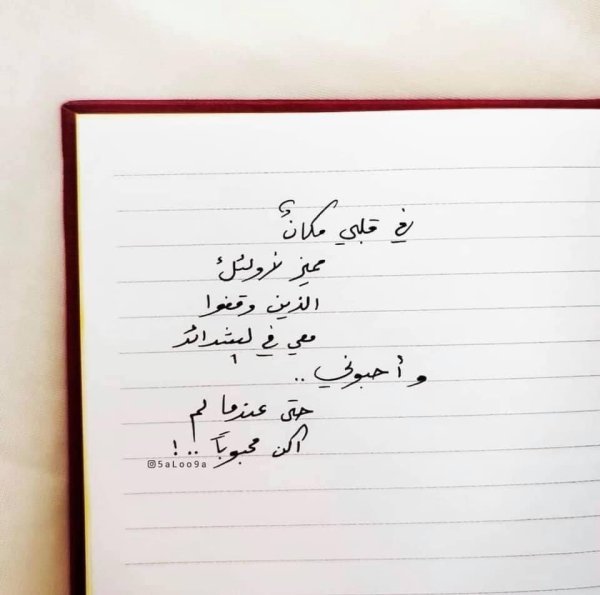 في قلبي مكانٌ
مميز لأولئك
الذين وقفوا
معي في الشدائد
وأحبوني ..
حتى عندما لم
اكن محبوباً .. !
@5aLoo9a